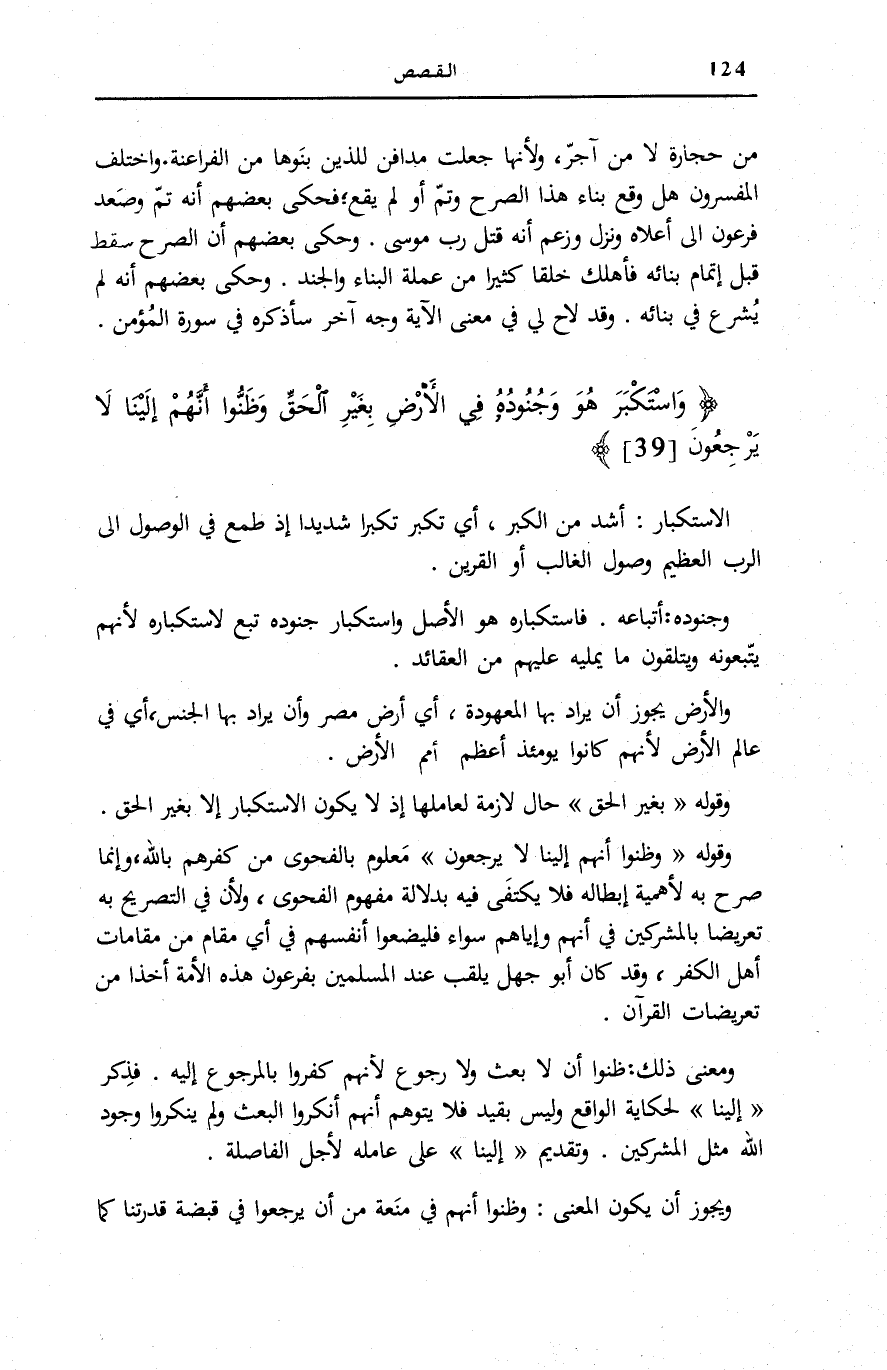 124
القصص
من حجارة لا من آجرّ، ولأنها جعلت مدافن للذين بنَوها من الفراعنة.واختلف
المفسرون هل وقع بناء هذا الصرح وتمّ أو لم يقع؛فحكى بعضهم أنه تمّ وصَعد
فرعون الى أعلاه ونزل وزعم أنه قتل رب موسى . وحكى بعضهم أن الصرح سقط
قبل إتمام بنائه فأهلك خلقا كثيرا من عملة البناء والجند . وحكى بعضهم أنه لم
يُشرع في بنائه . وقد لاح لي في معنى الآية وجه آخر سأذكره في سورة المُؤمن .
﴿ وَاسْتَكْبَرَ هُوَ وَجُنُودُهُ فِي الْأَرْضِ بِغَيْرِ ٱلْحَقِّ وَظَنُّوا أَنَّهُمْ إِلَيْنَا لَا
يَرْجِعُونَ [39] ﴾
الاستكبار : أشد من الكبر ، أي تكبر تكبرا شديدا إذ طمع في الوصول الى
الرب العظيم وصول الغالب أو القرين .
وجنوده:أتباعه . فاستكباره هو الأصل واستكبار جنوده تبع لاستكباره لأنهم
يتّبعونه ويتلقون ما يمليه عليهم من العقائد .
والأرض يجوز أن يراد بها المعهودة ، أي أرض مصر وأن يراد بها الجنس،أي في
عالم الأرض لأنهم كانوا يومئذ أعظم أمم الأرض .
وقوله « بغير الحق » حال لازمة لعاملها إذ لا يكون الاستكبار إلا بغير الحق .
وقوله « وظنوا أنهم إلينا لا يرجعون » مَعلوم بالفحوى من كفرهم بالله،وإنما
صرح به لأهمية إبطاله فلا يكتفَى فيه بدلالة مفهوم الفحوى ، ولأن في التصريح به
تعريضا بالمشركين في أنهم وإياهم سواء فليضعوا أنفسهم في أي مقام من مقامات
أهل الكفر ، وقد كان أبو جهل يلقب عند المسلمين بفرعون هذه الأمة أخذا من
تعريضات القرآن .
ومعنى ذلك:ظنوا أن لا بعث ولا رجوع لأنهم كفروا بالمرجوع إليه . فذِكر
« إلينا » لحكاية الواقع وليس بقيد فلا يتوهم أنهم أنكروا البعث ولم ينكروا وجود
الله مثل المشركين . وتقديم « إلينا » على عامله لأجل الفاصلة .
ويجوز أن يكون المعنى : وظنوا أنهم في منَعة من أن يرجعوا في قبضة قدرتنا كما